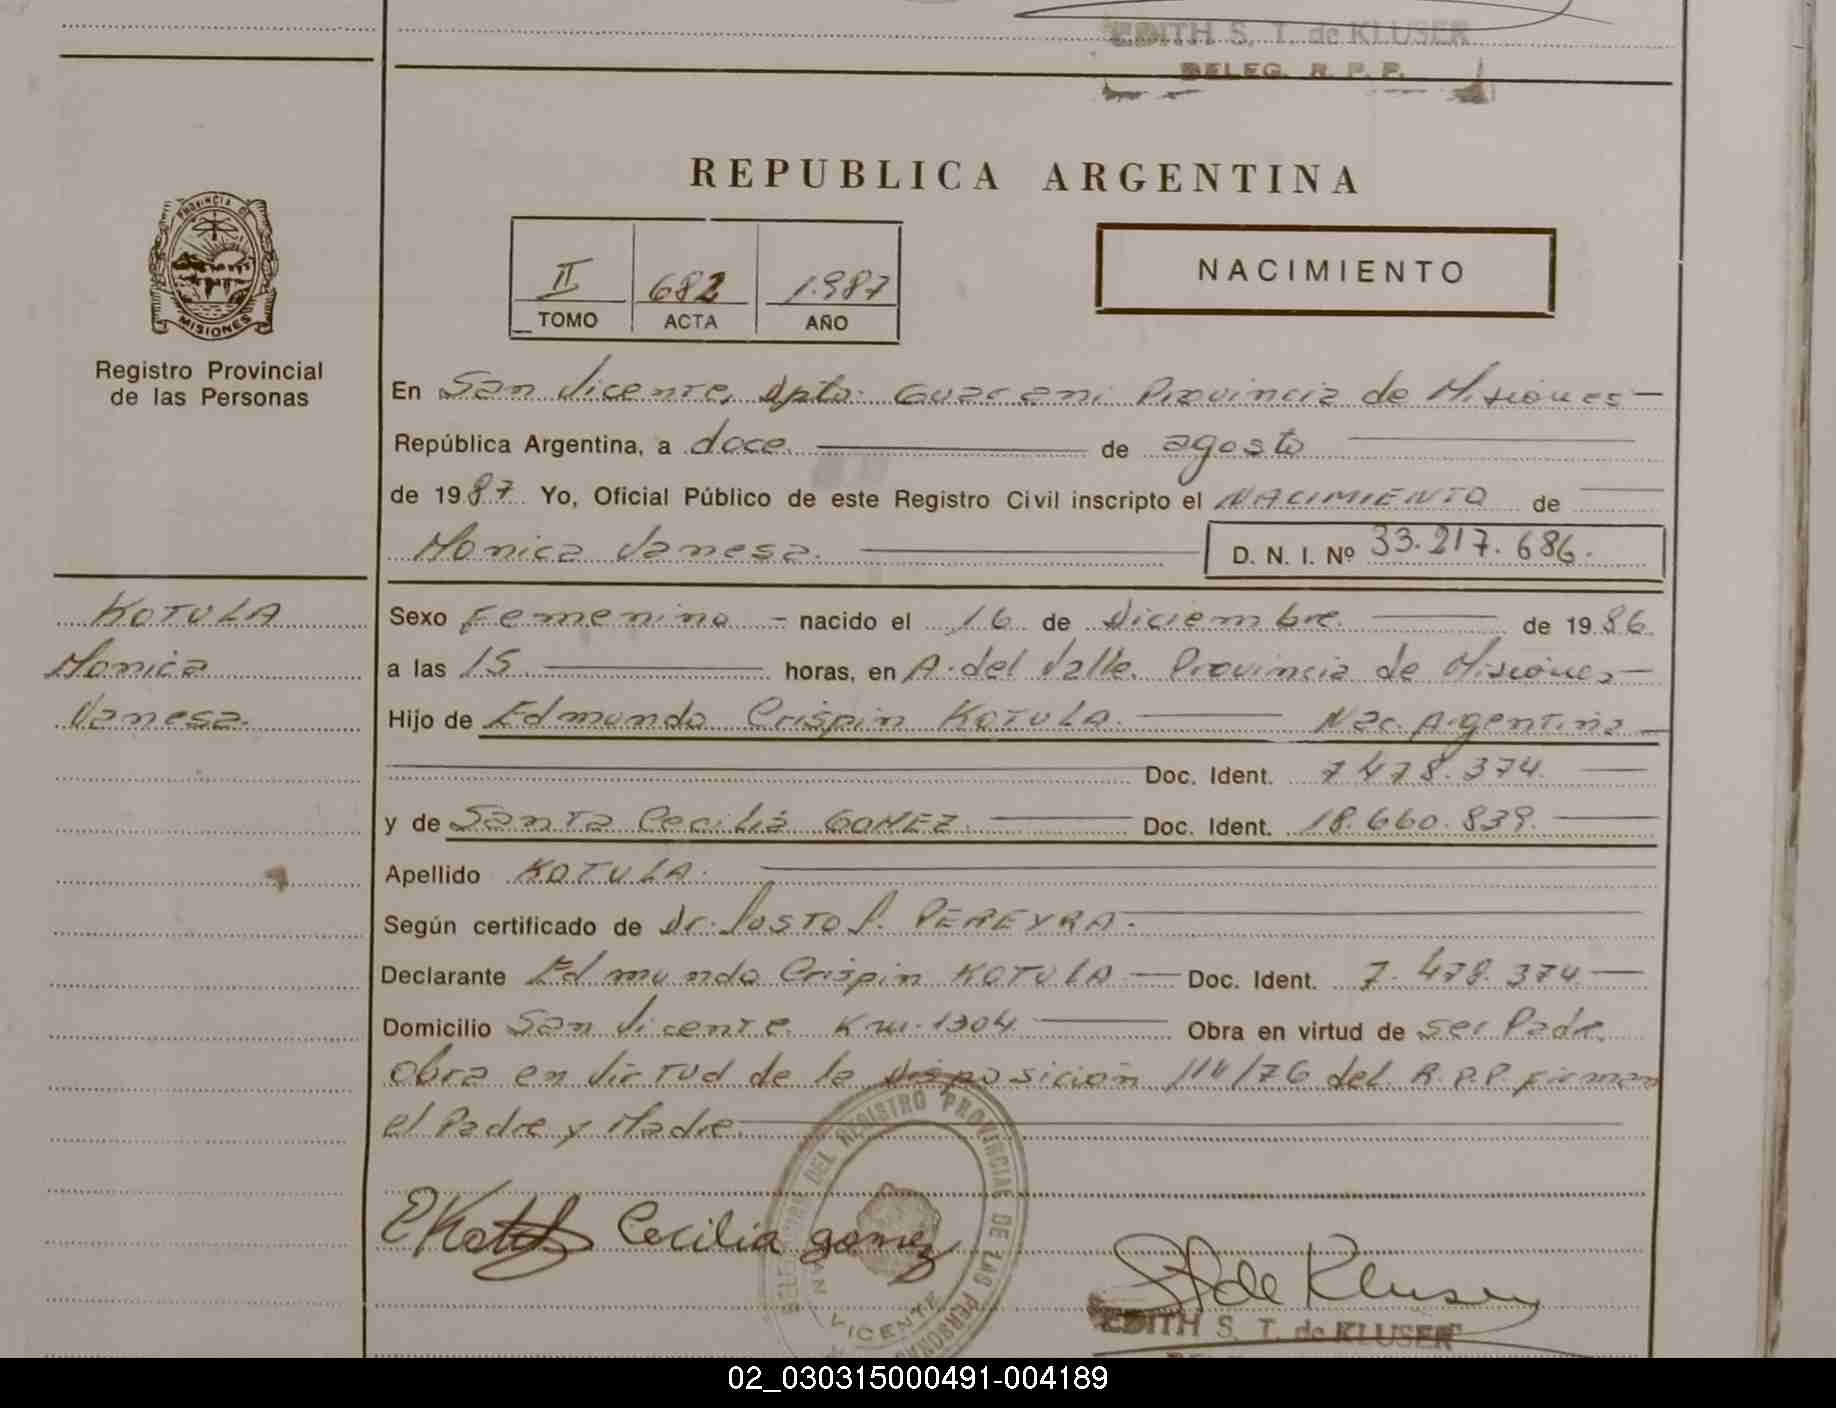 EDITH S. T. de KLUSER
DELEG. R. P. P.
REPUBLICA ARGENTINA
PROVINCIA DE
MISIONES
Registro Provincial
de las Personas
II 682 1.987
TOMO ACTA AÑO
NACIMIENTO
En San Vicente, Dpto. Guarani Provincia de Misiones
República Argentina, a doce de agosto
de 1987. Yo, Oficial Público de este Registro Civil inscripto el NACIMIENTO de
Monica Vanesa. D. N. I. Nº 33.217.686.
KOTULA
Monica
Vanesa.
Sexo Femenino - nacido el 16 de Diciembre de 1986.
a las 15 horas, en A. del Valle. Provincia de Misiones
Hijo de Edmundo Crispin KOTULA. Nac. Argentina
Doc. Ident. 7.478.374.
y de Santa Cecilia GOMEZ. Doc. Ident. 18.660.839.
Apellido KOTULA.
Según certificado de Dr. Justo P. PEREYRA.
Declarante Edmundo Crispin KOTULA Doc. Ident. 7.478.374.
Domicilio San Vicente. Km. 1304 Obra en virtud de ser Padre.
Obra en Virtud de la Disposición /76 del R.P.P. firman
el Padre y Madre.
Cecilia gomez
DEL REGISTRO PROVINCIAL DE LAS PERSONAS
SAN VICENTE
S T de Kluser
EDITH S. T. de KLUSER
02_030315000491-004189